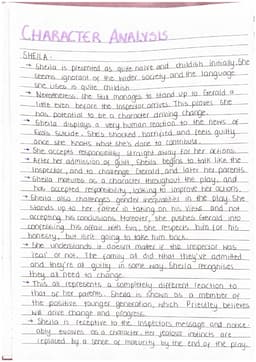 CHARACTER ANALYSIS
SHEILA:
→ Sheila is presented as quite naive and childish initially. She
seems ignorant of the wider society and the language
she uses is quite childish.
→ Nevertheless, she still manages to stand up to Gerald a
little even before the Inspector arrives. This proves she
has potential to be a character driving change.
→ Sheila displays a very human reaction to the news of
Eva's suicide. She's shocked, horrified and feels guilty
once she knows what she's done to contribute.
→ She accepts responsibility straight away for her actions.
→ After her admission of guilt, Sheila begins to talk like the
Inspector, and to challenge Gerald, and later her parents.
→ Sheila matures as a character throughout the play, and
has accepted responsibility, looking to improve her actions.
→ Sheila also challenges gender inequalities in the play. She
stands up to her father in taking on his views and not
accepting his conclusions. Moreover, she pushed Gerald into
confessing his affair with Eva. She respects him for his
honesty, but isn't going to take him back.
→ She understands it doesn't matter if the Inspector was
'real' or not. The family all did what they've admitted
and they're all guilty in some way. Sheila recognises
they all need to change.
→ This all represents a completely different reaction to
that of her parents. Sheila is shown as a member of
the positive younger generation, which Priestley believes
will drive change and progress.
→ Sheila is receptive to the Inspector's message, and notice-
ably evolves as a character. Her jealous instincts are
replaced by a sense of maturity by the end of the play.